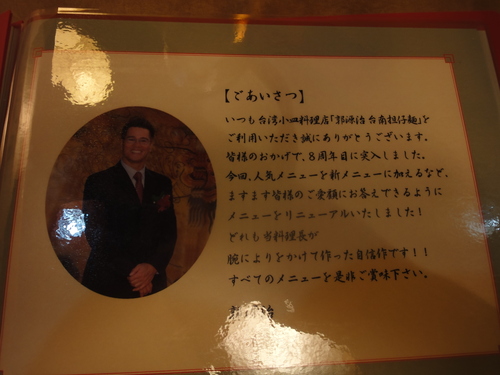 【ごあいさつ】
いつも台湾小皿料理店「郭源治 台南担仔麺」を
ご利用いただき誠にありがとうございます。
皆様のおかげで、8周年目に突入しました。
今回、人気メニューを新メニューに加えるなど、
ますます皆様のご愛顧にお答えできるように
メニューをリニューアルいたしました！
どれも当料理長が
腕によりをかけて作った自信作です！！
すべてのメニューを是非ご賞味下さい。